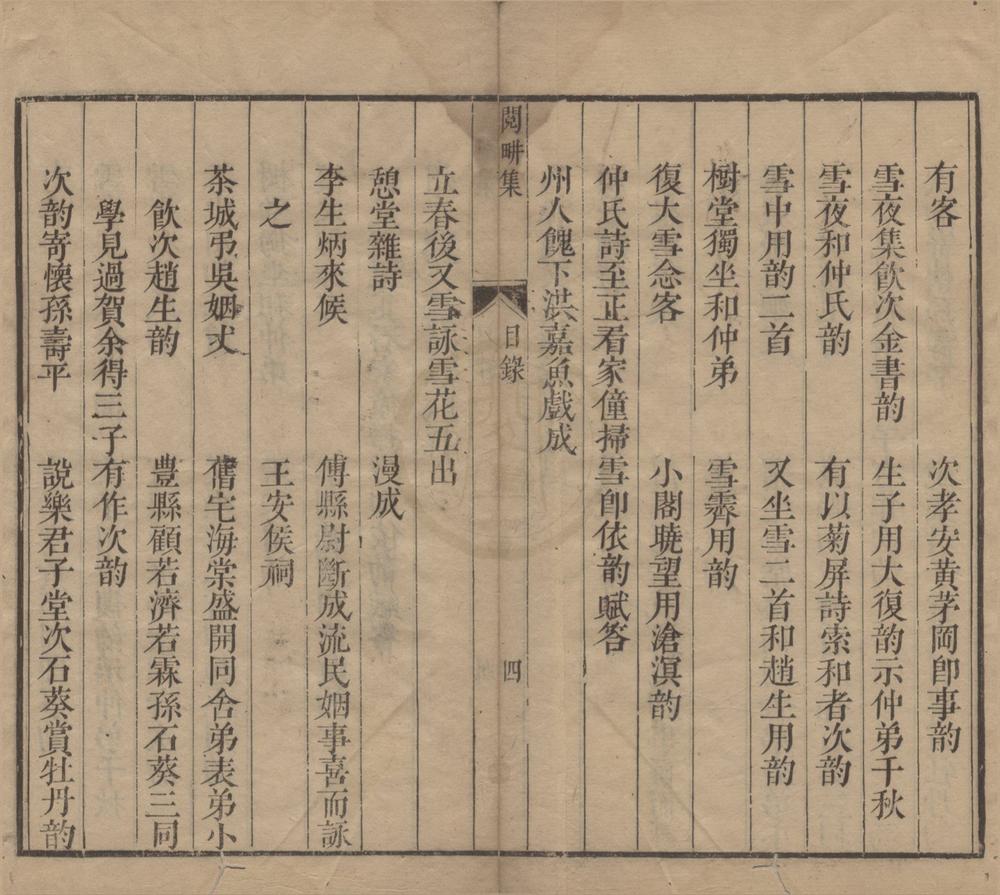 有客 次孝安黃茅岡卽事韵
雪夜集飲次金書韵 生子用大復韵示仲弟千秋
雪夜和仲氏韵 有以菊屏詩索和者次韵
雪中用韵二首 又坐雪二首和趙生用韵
樹堂獨坐和仲弟 雪霽用韵
復大雪念客 小閣曉望用滄溟韵
仲氏詩至正看家僮掃雪卽依韵賦答
州人餽下洪嘉魚戲成
閱畊集 目錄 四
立春後又雪詠雪花五出
憩堂雜詩 漫成
李生炳來候 傅縣尉斷成流民姻事喜而詠
之 王安侯祠
茶城弔吳姻丈 舊宅海棠盛開同舍弟表弟小
飲次趙生韵 豊縣顧若濟若霖孫石葵三同
學見過賀余得三子有作次韵
次韵寄懷孫壽平 說樂君子堂次石葵賞牡丹韵